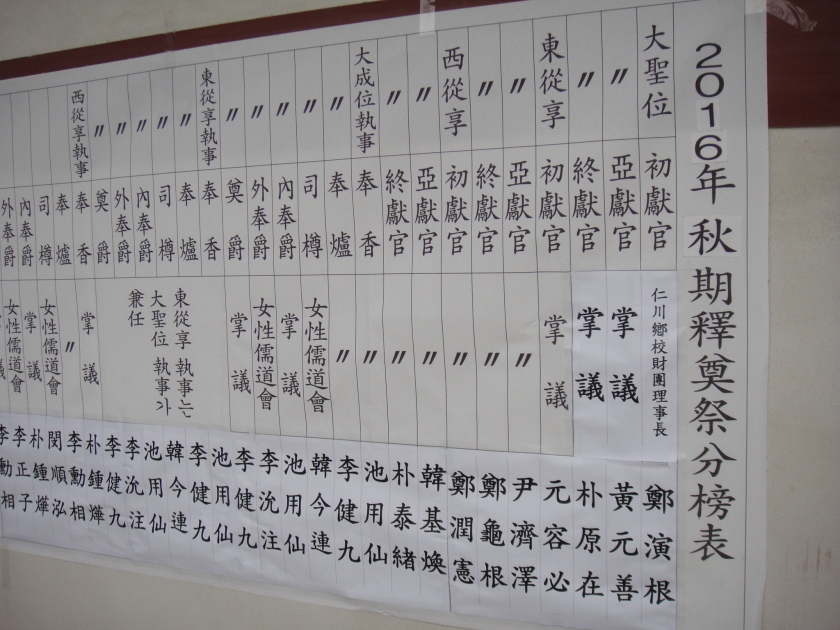 2016年 秋期釋奠祭分榜表
大聖位 初獻官 仁川鄕校財團理事長 鄭演根
〃 亞獻官 掌議 黃元善
〃 終獻官 掌議 朴原在
東從享 初獻官 掌議 元容必
〃 亞獻官 〃 尹濟澤
〃 終獻官 〃 鄭龜根
西從享 初獻官 〃 鄭潤憲
〃 亞獻官 〃 韓基煥
〃 終獻官 〃 朴泰緖
大成位執事 奉香 〃 池用仙
〃 奉爐 〃 李健九
〃 司樽 女性儒道會 韓今連
〃 內奉爵 掌議 池用仙
〃 外奉爵 女性儒道會 李沇注
〃 奠爵 掌議 李健九
東從享執事 奉香 東從享 執事는 池用仙
〃 奉爐 大聖位 執事가 李健九
〃 司樽 兼任 韓今連
〃 內奉爵 池用仙
〃 外奉爵 李沇注
〃 奠爵 李健九
西從享執事 奉香 掌議 朴鍾燁
奉爐 〃 李勳相
司樽 女性儒道會 閔順泓
內奉爵 掌議 朴鍾燁
外奉爵 女性儒道會 李正子
李勳相